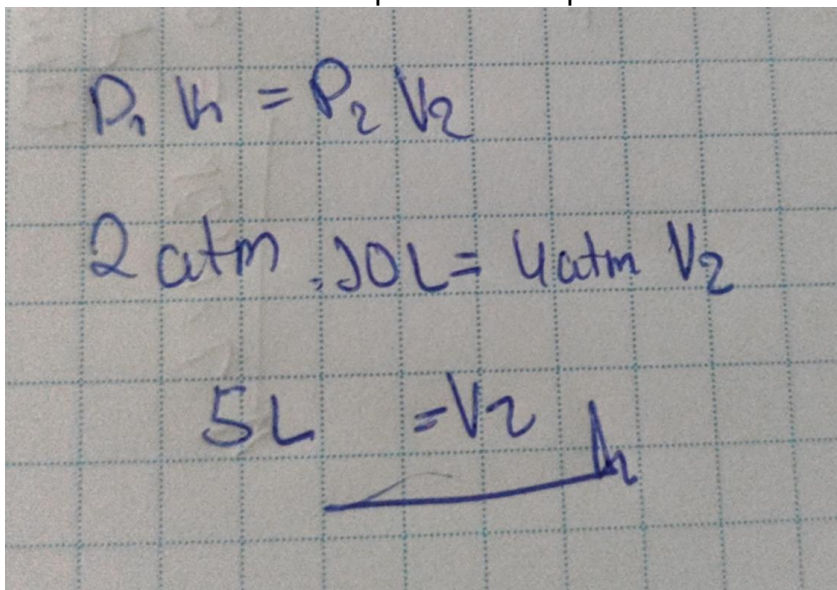 P₁ V₁ = P₂ V₂
2 atm . 10 L = 4 atm V₂
5 L = V₂